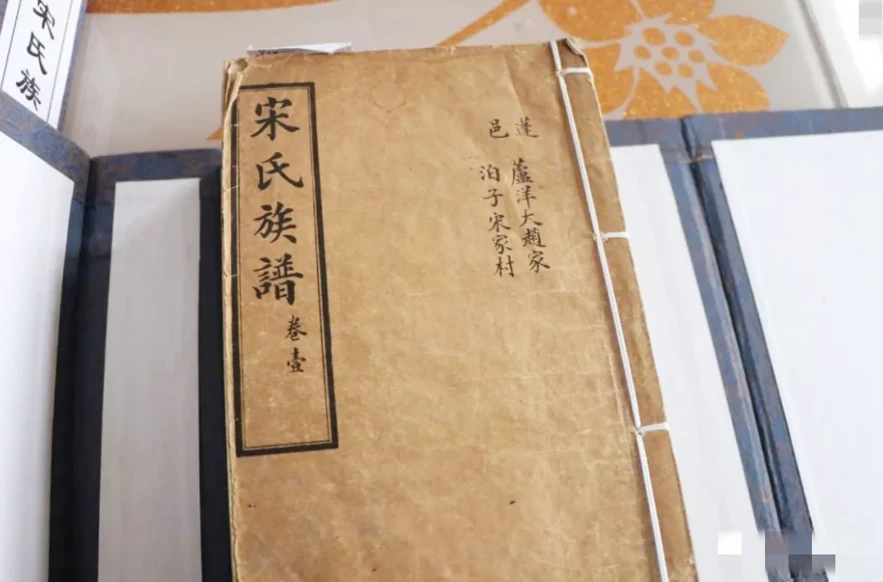 蓬
蘆洋大趙家
邑
泊子宋家村
宋氏族譜 卷壹
宋氏族